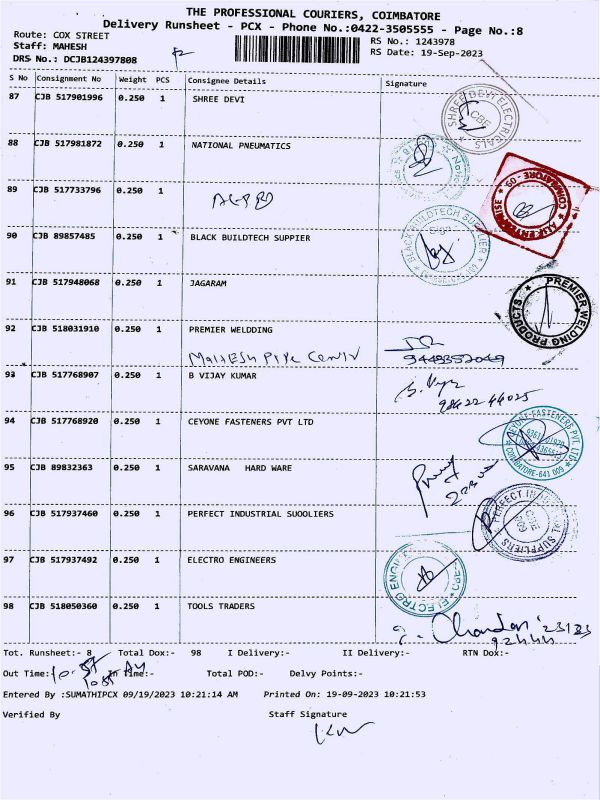 THE PROFESSIONAL COURIERS, COIMBATORE
Delivery Runsheet - PCX - Phone No.:0422-3505555 - Page No.:8
Route: COX STREET
RS No.: 1243978
Staff: MAHESH
RS Date: 19-Sep-2023
DRS No.: DCJB124397808
S No Consignment No Weight PCS Consignee Details Signature
87 CJB 517901996 0.250 1 SHREE DEVI
SHREE DEVI ELECTRICALS CBE
88 CJB 517981872 0.250 1 NATIONAL PNEUMATICS
89 CJB 517733796 0.250 1
COIMBATORE - 09
90 CJB 89857485 0.250 1 BLACK BUILDTECH SUPPIER
BLACK BUILDTECH SUPPLIER
91 CJB 517948068 0.250 1 JAGARAM
PREMIER WELDING PRODUCTS
92 CJB 518031910 0.250 1 PREMIER WELDDING
MAHESH PIPE Centre
9449352049
93 CJB 517768907 0.250 1 B VIJAY KUMAR
98422 44025
94 CJB 517768920 0.250 1 CEYONE FASTENERS PVT LTD
CEYONE FASTENERS PVT. LTD. COIMBATORE-641 009
95 CJB 89832363 0.250 1 SARAVANA HARD WARE
96 CJB 517937460 0.250 1 PERFECT INDUSTRIAL SUOOLIERS
PERFECT IN L SUPPLIERS CBE
97 CJB 517937492 0.250 1 ELECTRO ENGINEERS
ELECTRO ENGINE CBE
98 CJB 518050360 0.250 1 TOOLS TRADERS
Chandan
Tot. Runsheet:- 8 Total Dox:- 98 I Delivery:- II Delivery:- RTN Dox:-
Out Time: In Time:- Total POD:- Delvy Points:-
Entered By :SUMATHIPCX 09/19/2023 10:21:14 AM Printed On: 19-09-2023 10:21:53
Verified By Staff Signature